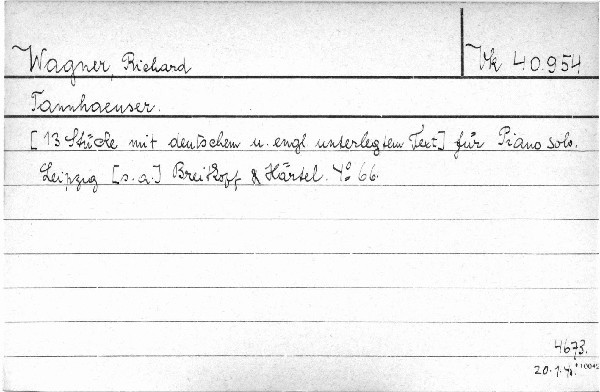 Wagner, Richard
Vk 40.954
Tannhaeuser.
[13 Stücke mit deutschem u. engl unterlegtem Text] für Piano solo.
Leipzig [s.a.] Breitkopf & Härtel. 4° 66.
4673.
20.1.